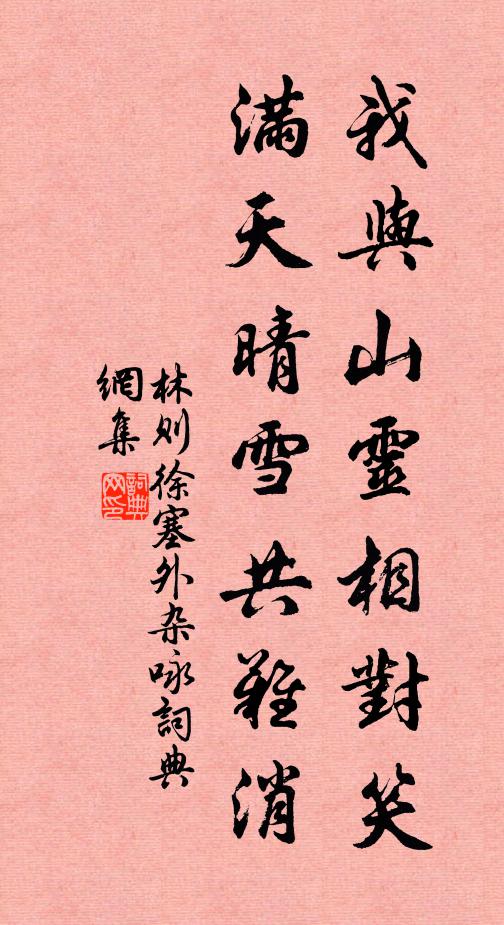 我與山靈相對笑
滿天晴雪共難消
林則徐塞外杂咏詞典
網集
詞典
网印